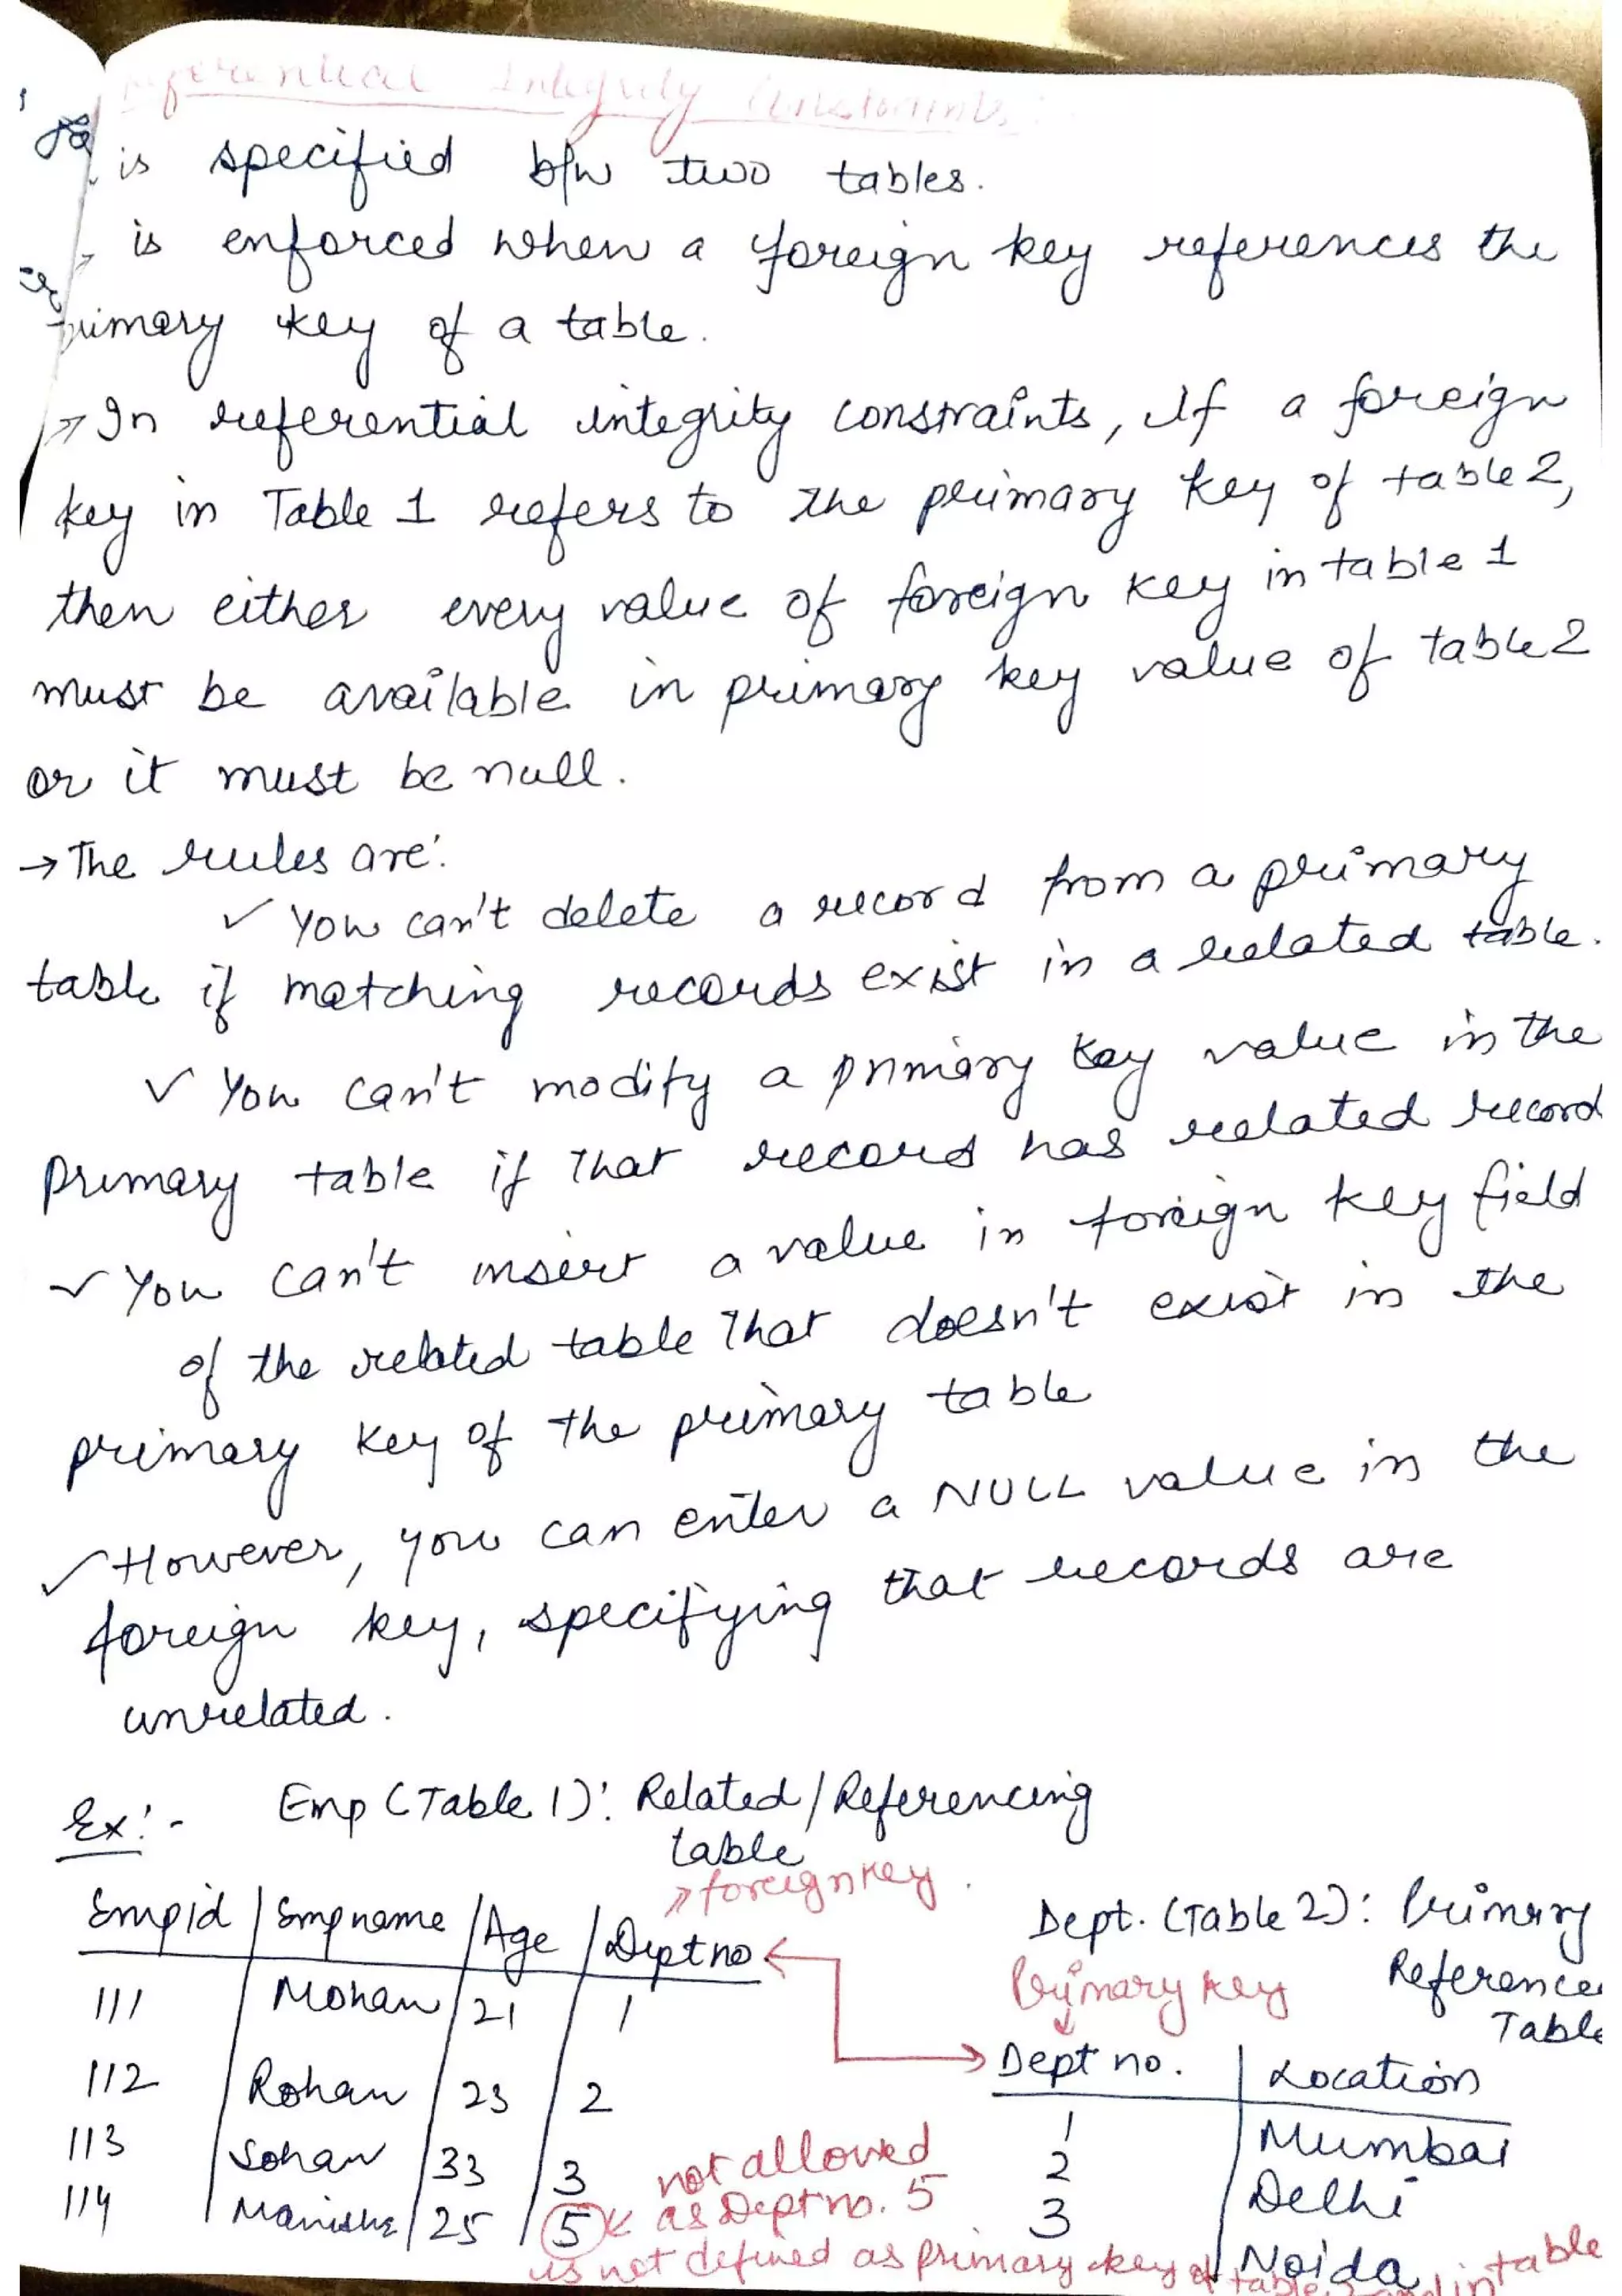 Referential Integrity Constraints:
is specified b/w two tables.
→ is enforced when a foreign key references the
primary key of a table.
→ In referential integrity constraints, if a foreign
key in Table 1 refers to the primary key of table 2,
then either every value of foreign key in table 1
must be available in primary key value of table 2
or it must be null.
→ The rules are:
✓ You can't delete a record from a primary
table if matching records exist in a related table.
✓ You can't modify a primary key value in the
primary table if that record has related record
✓ You can't insert a value in foreign key field
of the related table that doesn't exist in the
primary key of the primary table
✓ However, you can enter a NULL value in the
foreign key, specifying that records are
unrelated.
Ex:- Emp (Table 1): Related/Referencing
table
→ foreign key.
Empid | Empname | Age | Deptno
111 Mohan 21 1
112 Rohan 23 2
113 Sohan 33 3
114 Manisha 25 5
not allowed
as Dept no. 5
is not defined as primary key of table
Dept. (Table 2): Primary
Reference
Table
Primary key
Dept no. | Location
1 Mumbai
2 Delhi
3 Noida
in table